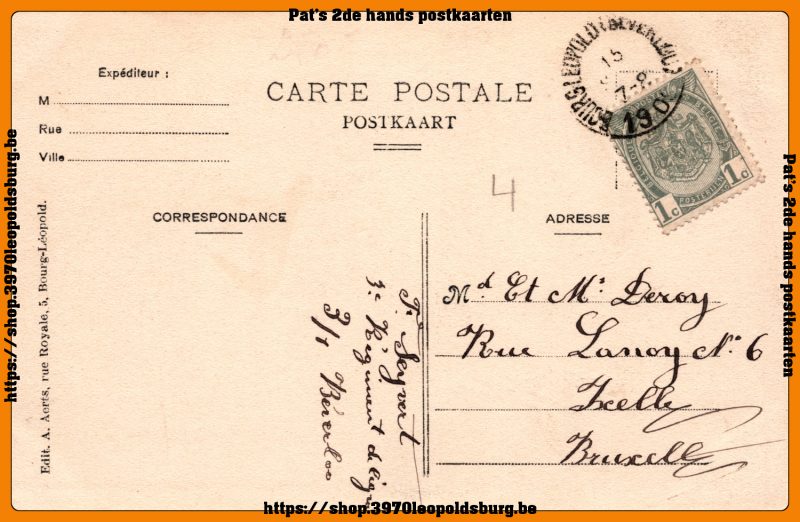 Pat's 2de hands postkaarten
Expéditeur :
M
Rue
Ville
CARTE POSTALE
POSTKAART
BOURG-LEOPOLD (BEVERLOO)
15
7-8
190
1c
POSTERIJEN
1c
4
CORRESPONDANCE
ADRESSE
Md Et Mr Deroy
Rue Lanoy No 6
Ixelle
Bruxelle
Fr Seyvert
3e Régiment de ligne
3/1 Beverloo
Edit. A. Aerts, rue Royale, 5, Bourg-Léopold.
https://shop.3970leopoldsburg.be
Pat's 2de hands postkaarten
https://shop.3970leopoldsburg.be